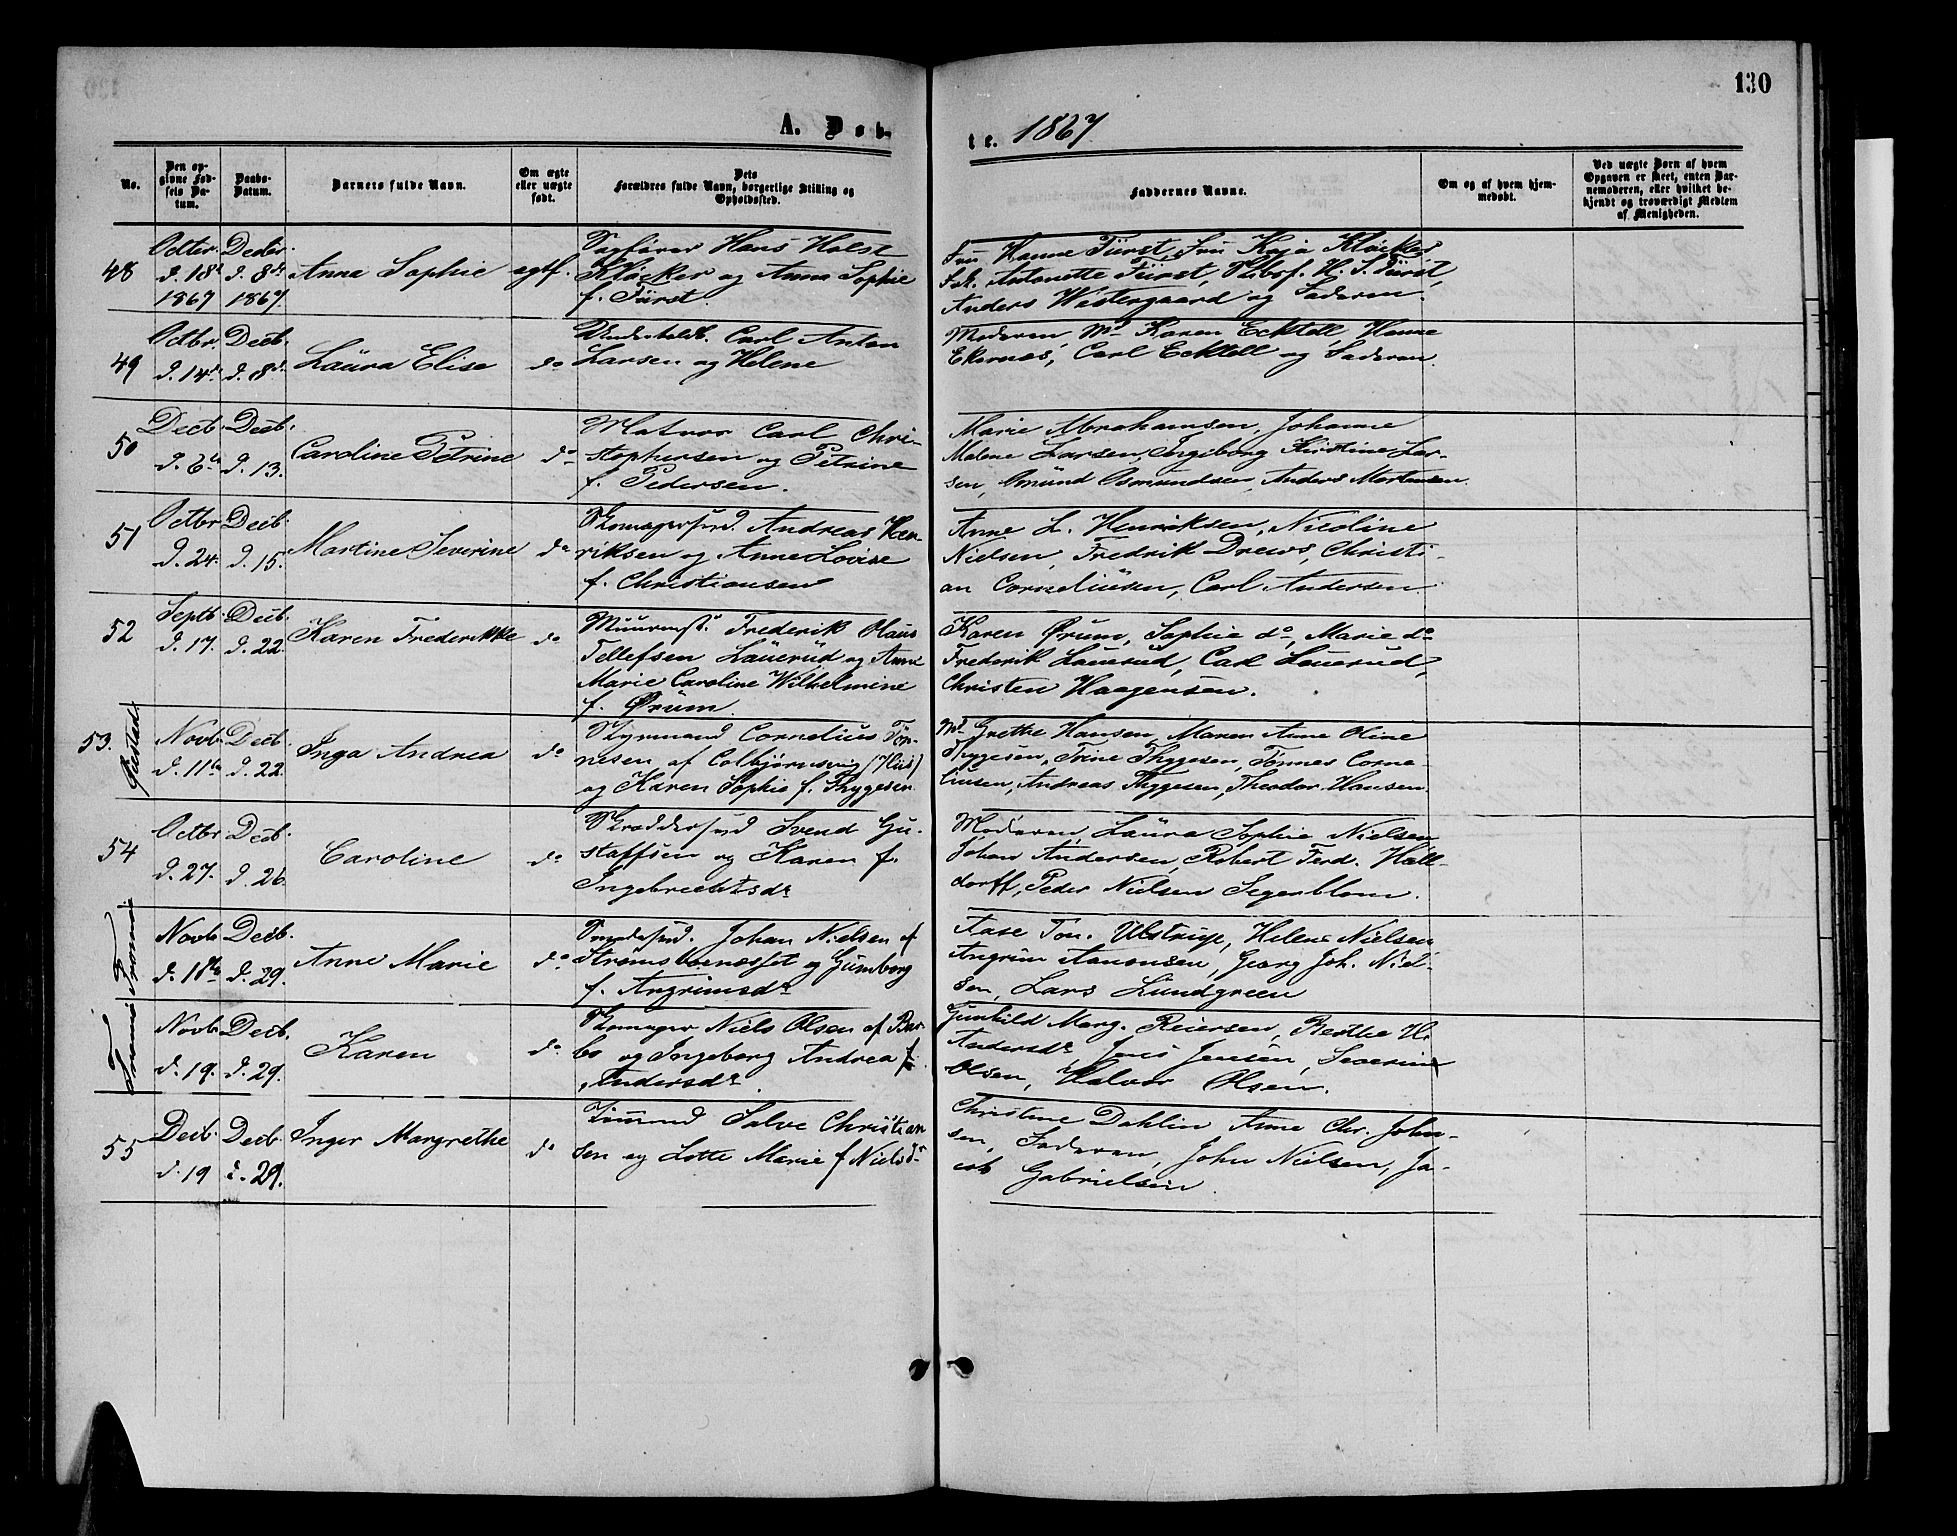 130
A. Døb- te. 1867
No.
Den op-
givne Fød-
sels Da-
tum.
Daabs-
Datum.
Barnets fulde Navn.
Om ægte
eller uægte
født.
Dets
Forældres fulde Navn, borgerlige Stilling og
Opholdssted.
Faddernes Navne.
Om og af hvem hjem-
medøbt.
Ved uægte Børn af hvem
Opgaven er skeet, enten Bar-
nemoderen, eller hvilket be-
kjendt og troværdigt Medlem
af Menigheden.
48
Octbr.
d. 18d
1867
Decbr.
d. 8de
1867.
Anna Sophie
ægtf.
Sagfører Hans Holst
Kløcker og Anna Sophie
f. Fürst.
Fru Hanne Fürst, Fru Kaja Kløcker,
Frk. Antonette Fürst, Skibsf. H. S. Fürst,
Anders Westergaard og Faderen.
49
Octbr.
d. 14d
Decb.
d. 8d.
Laura Elise
do
Carl Anton
Larsen og Helene
Moderen, Md Karen Ecktell, Hanne
Ekernæs, Carl Ecktell og Faderen.
50
Decb.
d. 6te
Decb.
d. 13.
Caroline Petrine
do
Matros Carl Chri-
stophersen og Petrine
f. Pedersen.
Marie Abrahamsen, Johanne
Malene Larsen, Ingeborg Kirstine Lar-
sen, Omund Osmundsen, Anders Mortensen.
51
Octbr
d. 24.
Decb.
d. 15.
Martine Severine
do
Skomagersvd. Andreas Hen-
riksen og Anne Lovise
f. Christiansen
Anne L. Henriksen, Nicoline
Nielsen, Fredrik Drews, Christi-
an Corneliusen, Carl Andersen.
52
Septb.
d. 17.
Decb.
d. 22.
Karen Frederikke
do
Muurmst. Frederik Olaus
Tellefsen Lauerud og Anne
Marie Caroline Wilhelmine
f. Ørum.
Karen Ørum, Sophie do, Marie do
Frederik Lauerud, Carl Lauerud,
Christen Haagensen.
53.
Novb.
d. 11te
Decb.
d. 22.
Inga Andrea
do
Styrmand Cornelius Tøn-
nesen af Colbjørnsvig (Hiis)
og Karen Sophie f. Thygesen
Md Grethe Hansen, Maren Anne Oline
Thygesen, Trine Thygesen, Tønnes Corne-
liusen, Andreas Thygesen, Theodor Hansen.
54
Octbr
d. 27.
Decb.
d. 26.
Caroline
do
Skræddersvd Svend Gu-
staffsen og Karen f.
Ingebrechtsdr
Moderen, Laura Sophie Nielsen,
Johan Andersen, Robert Ferd. Hall-
dorff, Peder Nielsen Segerblom.
Tromø
Novb
d. 18de
Decb.
d. 29.
Anne Marie
do
Smedesvd. Johan Nielsen af
Strømsbunæsset og Gunborg
f. Angrimsdr
Aase Ton. Ulstrup, Helene Nielsen
Angrim Aanonsen, Georg Joh. Niel-
sen, Lars Lundgreen
Tromø
Novb
d. 19.
Decb.
d. 29.
Karen
do
Skomager Niels Olsen af Bar-
bo og Ingeborg Andrea f.
Andersdr.
Gunhild Marg. Reiersen, Berthe H.
Andersdr, Jens Jensen, Severin
Olsen, Halvor Olsen.
55
Decb.
d. 19
Decb.
d. 29.
Inger Margrethe
do
Tømmd Salve Christian
sen og Lotte Marie f. Nielsdr
Christine Dahlin Anne Chr. John-
sen, Faderen, John Nielsen, Ja-
cob Gabrielsen.